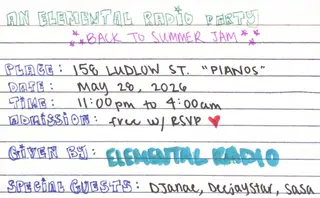 AN ELEMENTAL RADIO PARTY
*BACK TO SUMMER JAM*
PLACE: 158 LUDLOW ST. "PIANOS"
DATE: MAY 28, 2026
TIME: 11:00pm to 4:00am
ADMISSION: free w/ RSVP ♥
GIVEN BY: ELEMENTAL RADIO
SPECIAL GUESTS: DJanae, DeeJayStar, Sasa